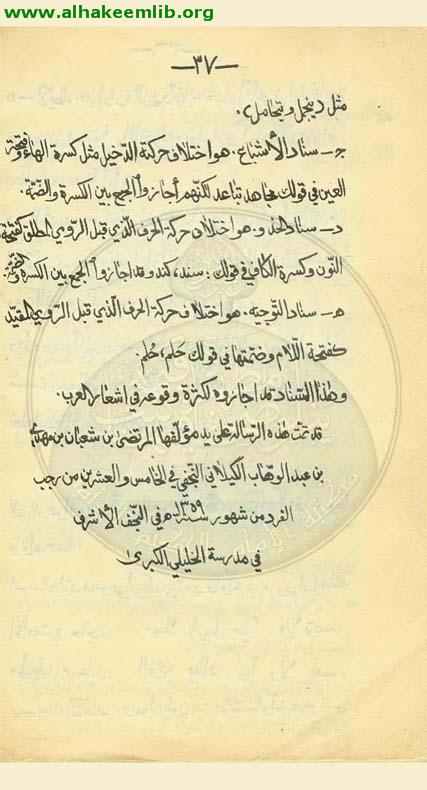 www.alhakeemlib.org
—٣٧—
مثل دينجل ويتحامل.
جـ ـ سناد الأشباع. هو اختلاف حركة الدخيل مثل كسرة الهاء وفتحة
العين في قولك مجاهد تباعد لكنهم أجازوا الجمع بين الكسرة والضمّة.
د ـ سناد الحذو. هو اختلاف حركة الحرف الّذي قبل الرّوي المطلق كفتحة
النّون وكسرة الكاف في قولك: سند، كند وقد اجازوا الجمع بين الكسرة والضمّة
هـ ـ سناد التّوجيه. هو اختلاف حركة الحرف الّذي قبل الرّوي المقيّد
كفتحة اللّام وضمّتها في قولك حَلم، حُلم.
وهذا السّناد قد اجازوه لكثرة وقوعه في اشعار العرب.
قد تمّت هذه الرّسالة على يد مؤلّفها المرتضى بن شعبان بن مهدي
بن عبد الوهّاب الگيلاني النّجفي في الخامس والعشرين من رجب
الفرد من شهور سنة ١٣٥٩ هـ في النّجف الأشرف
في مدرسة الخليلي الكبرى